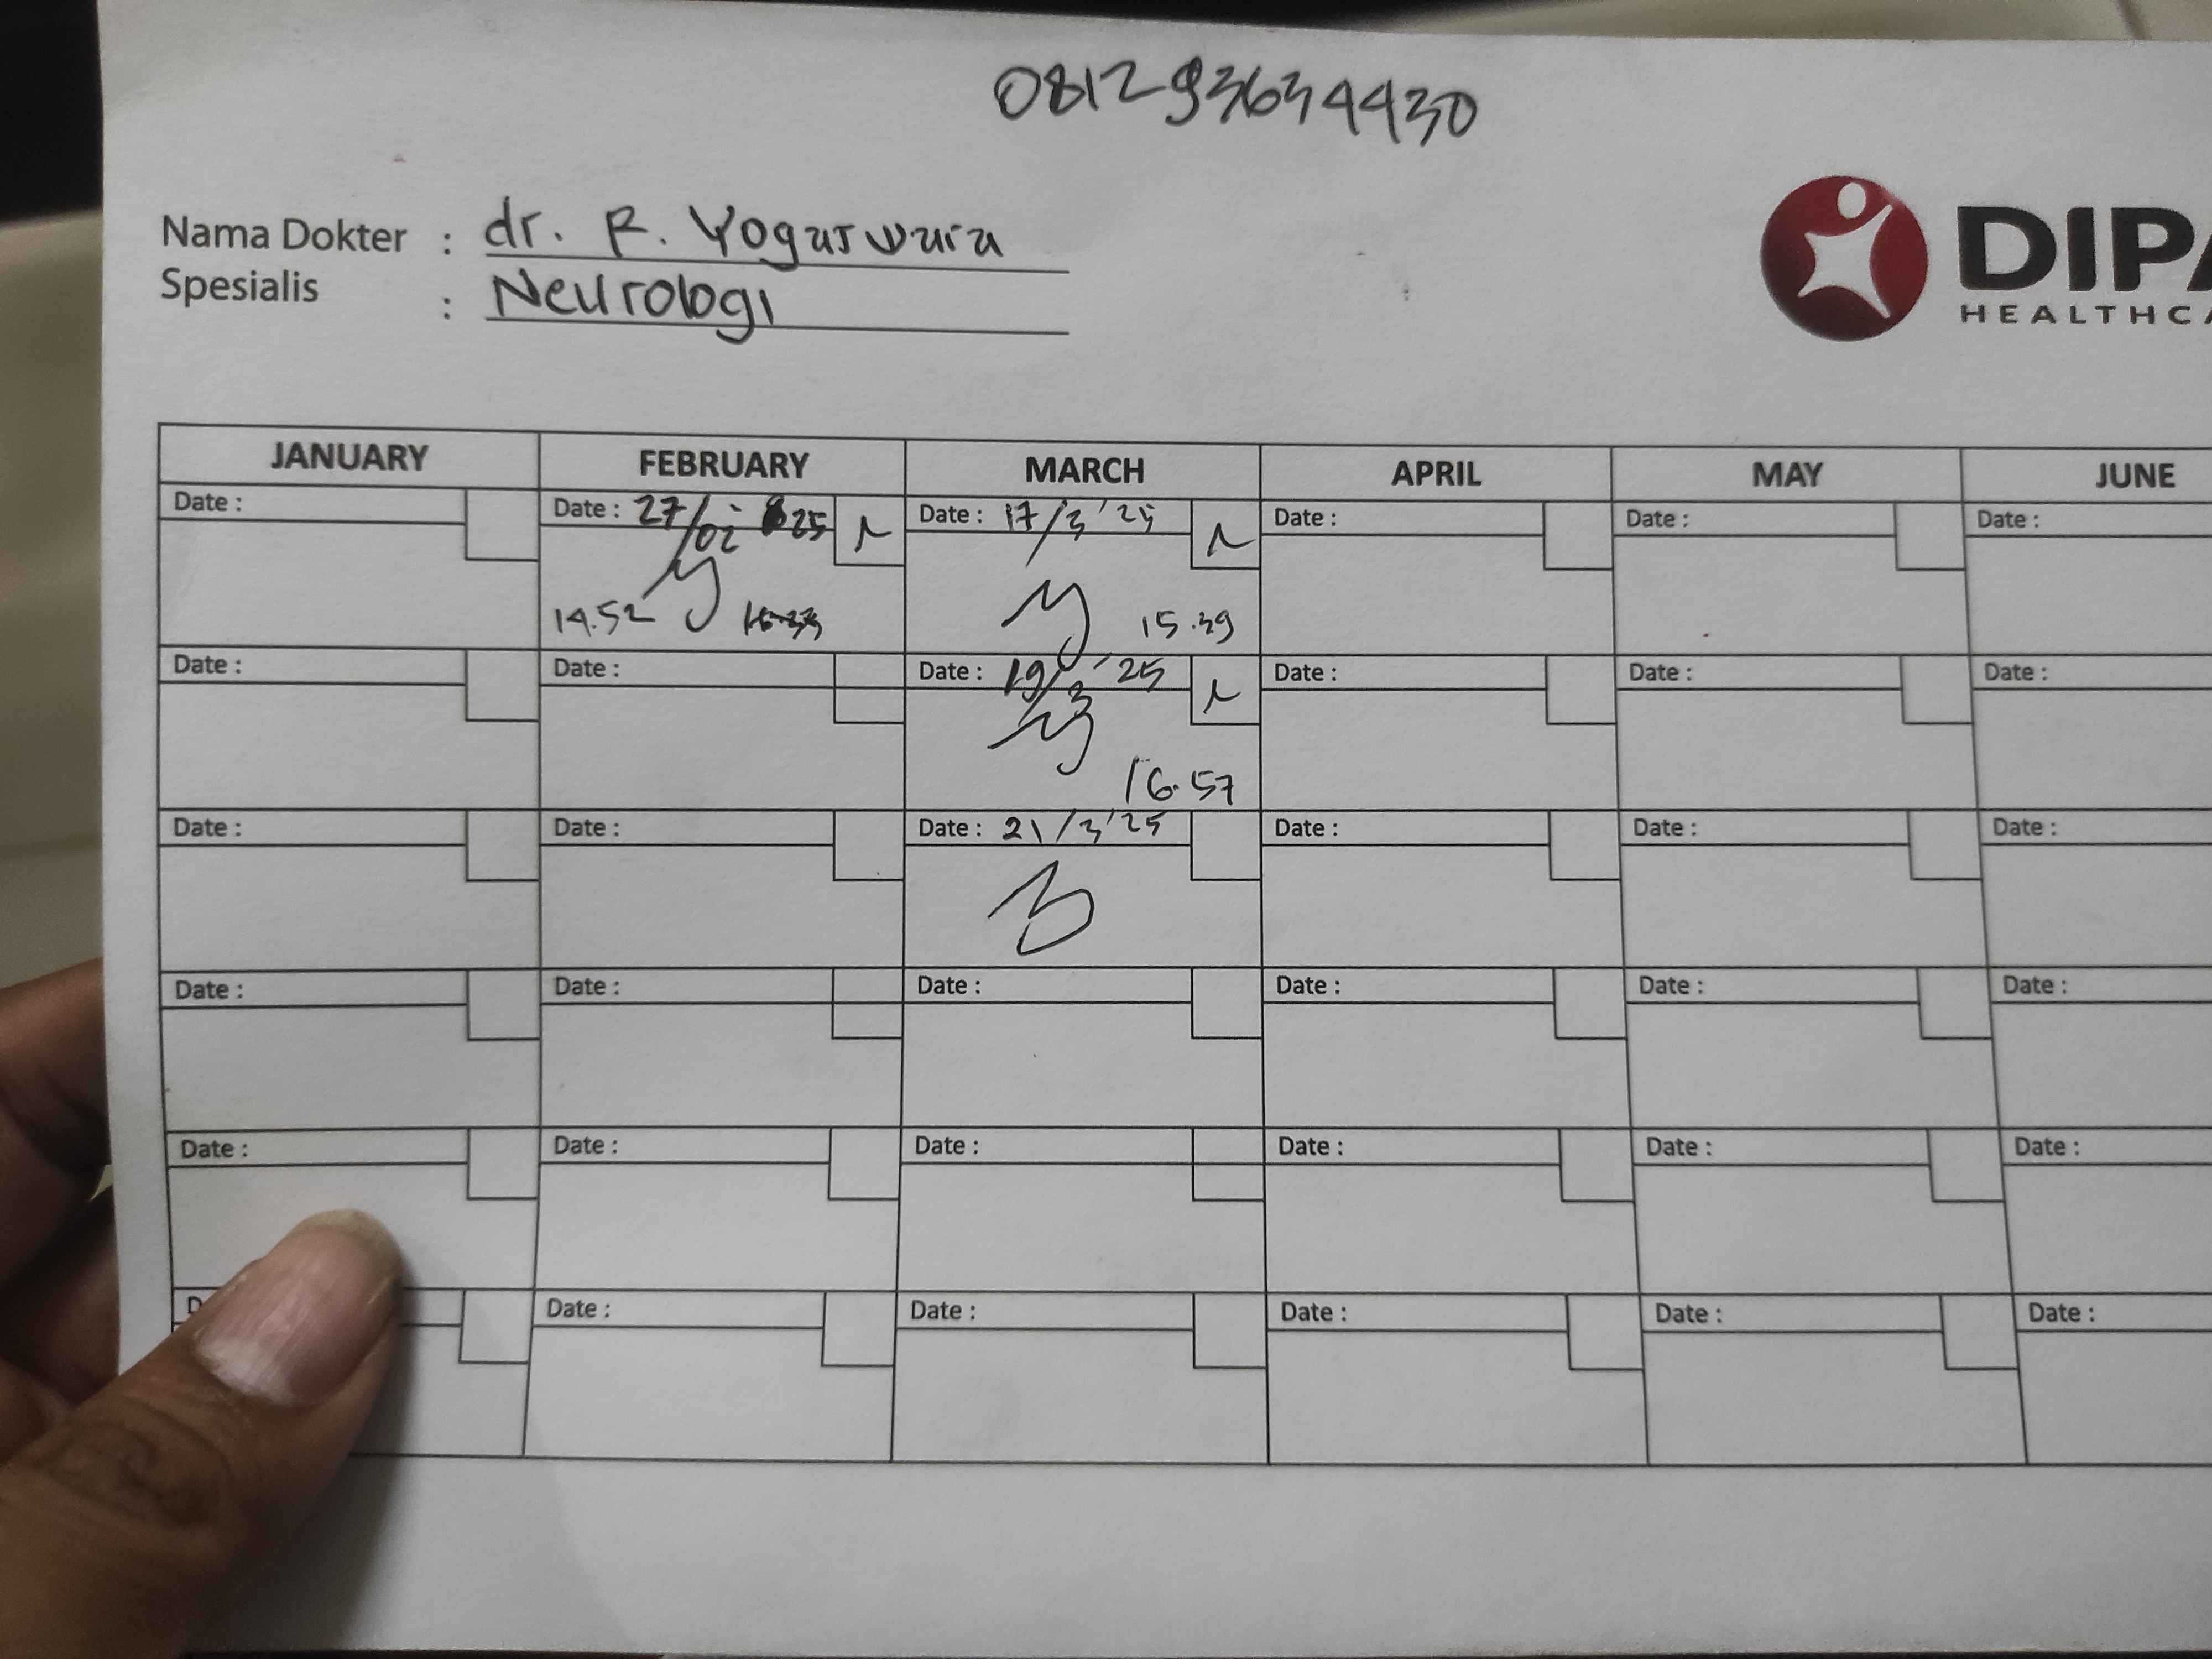 081293634430
Nama Dokter : dr. R. Yogaswara
Spesialis : Neurologi
DIPA
HEALTHCA
JANUARY FEBRUARY MARCH APRIL MAY JUNE
Date : Date : 27/02 25 Date : 17/3 '25 Date : Date : Date :
14.52 15.39
Date : Date : Date : 19/3 '25 Date : Date : Date :
16.57
Date : Date : Date : 21/3 '25 Date : Date : Date :
Date : Date : Date : Date : Date : Date :
Date : Date : Date : Date : Date : Date :
Date : Date : Date : Date : Date :